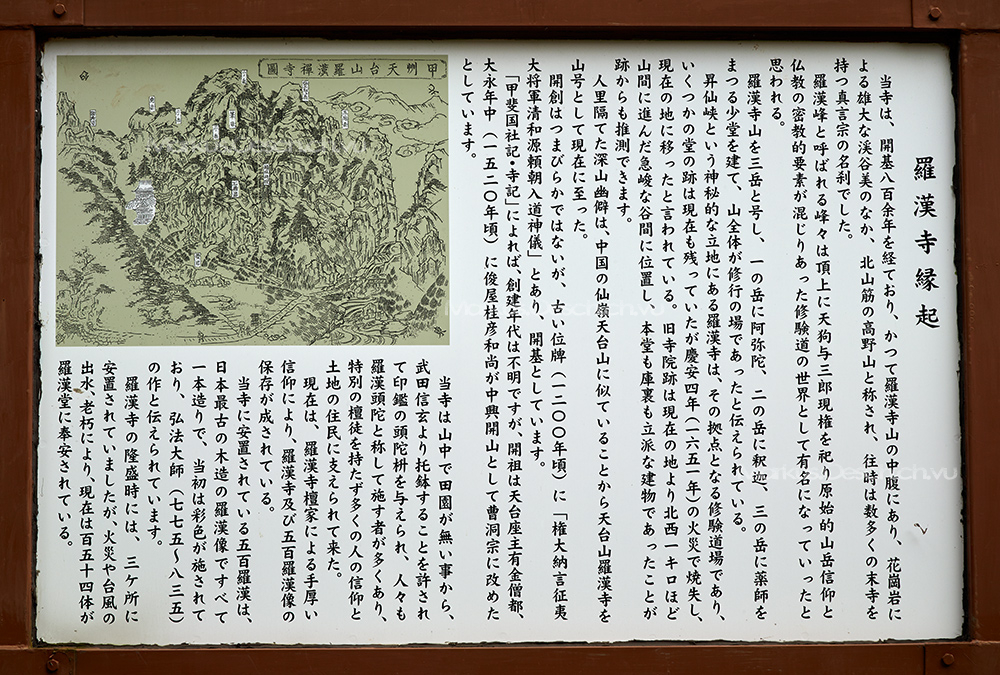 羅漢寺縁起
当寺は、開基八百余年を経ており、かつて羅漢寺山の中腹にあり、花崗岩に
よる雄大な渓谷美のなか、北山筋の高野山と称され、往時は数多くの末寺を
持つ真言宗の名刹でした。
羅漢峰と呼ばれる峰々は頂上に天狗与三郎現権を祀り原始的山岳信仰と
仏教の密教的要素が混じりあった修験道の世界として有名になっていったと
思われる。
羅漢寺山を三岳と号し、一の岳に阿弥陀、二の岳に釈迦、三の岳に薬師を
まつる少堂を建て、山全体が修行の場であったと伝えられている。
昇仙峡という神秘的な立地にある羅漢寺は、その拠点となる修験道場であり、
いくつかの堂の跡は現在も残っていたが慶安四年(一六五一年)の火災で焼失し、
現在の地に移ったと言われている。旧寺院跡は現在の地より北西一キロほど
山間に進んだ急峻な谷間に位置し、本堂も庫裏も立派な建物であったことが
跡からも推測できます。
人里隔てた深山幽僻は、中国の仙嶺天台山に似ていることから天台山羅漢寺を
山号として現在に至った。
開創はつまびらかではないが、古い位牌(一二〇〇年頃)に「権大納言征夷
大将軍清和源頼朝入道神儀」とあり、開基としています。
「甲斐国社記・寺記」によれば、創建年代は不明ですが、開祖は天台座主有金僧都、
大永年中(一五二〇年頃)に俊屋桂彦和尚が中興開山として曹洞宗に改めた
としています。
甲州天台山羅漢禅寺圖
当寺は山中で田園が無い事から、
武田信玄より托鉢することを許され
て印鑑の頭陀枡を与えられ、人々も
羅漢頭陀と称して施す者が多くあり、
特別の檀徒を持たず多くの人の信仰と
土地の住民に支えられて来た。
現在は、羅漢寺檀家による手厚い
信仰により、羅漢寺及び五百羅漢像の
保存が成されている。
当寺に安置されている五百羅漢は、
日本最古の木造の羅漢像ですべて
一本造りで、当初は彩色が施されて
おり、弘法大師(七七五〜八三五)
の作と伝えられています。
羅漢寺の隆盛時には、三ケ所に
安置されていましたが、火災や台風の
出水、老朽により、現在は百五十四体が
羅漢堂に奉安されている。